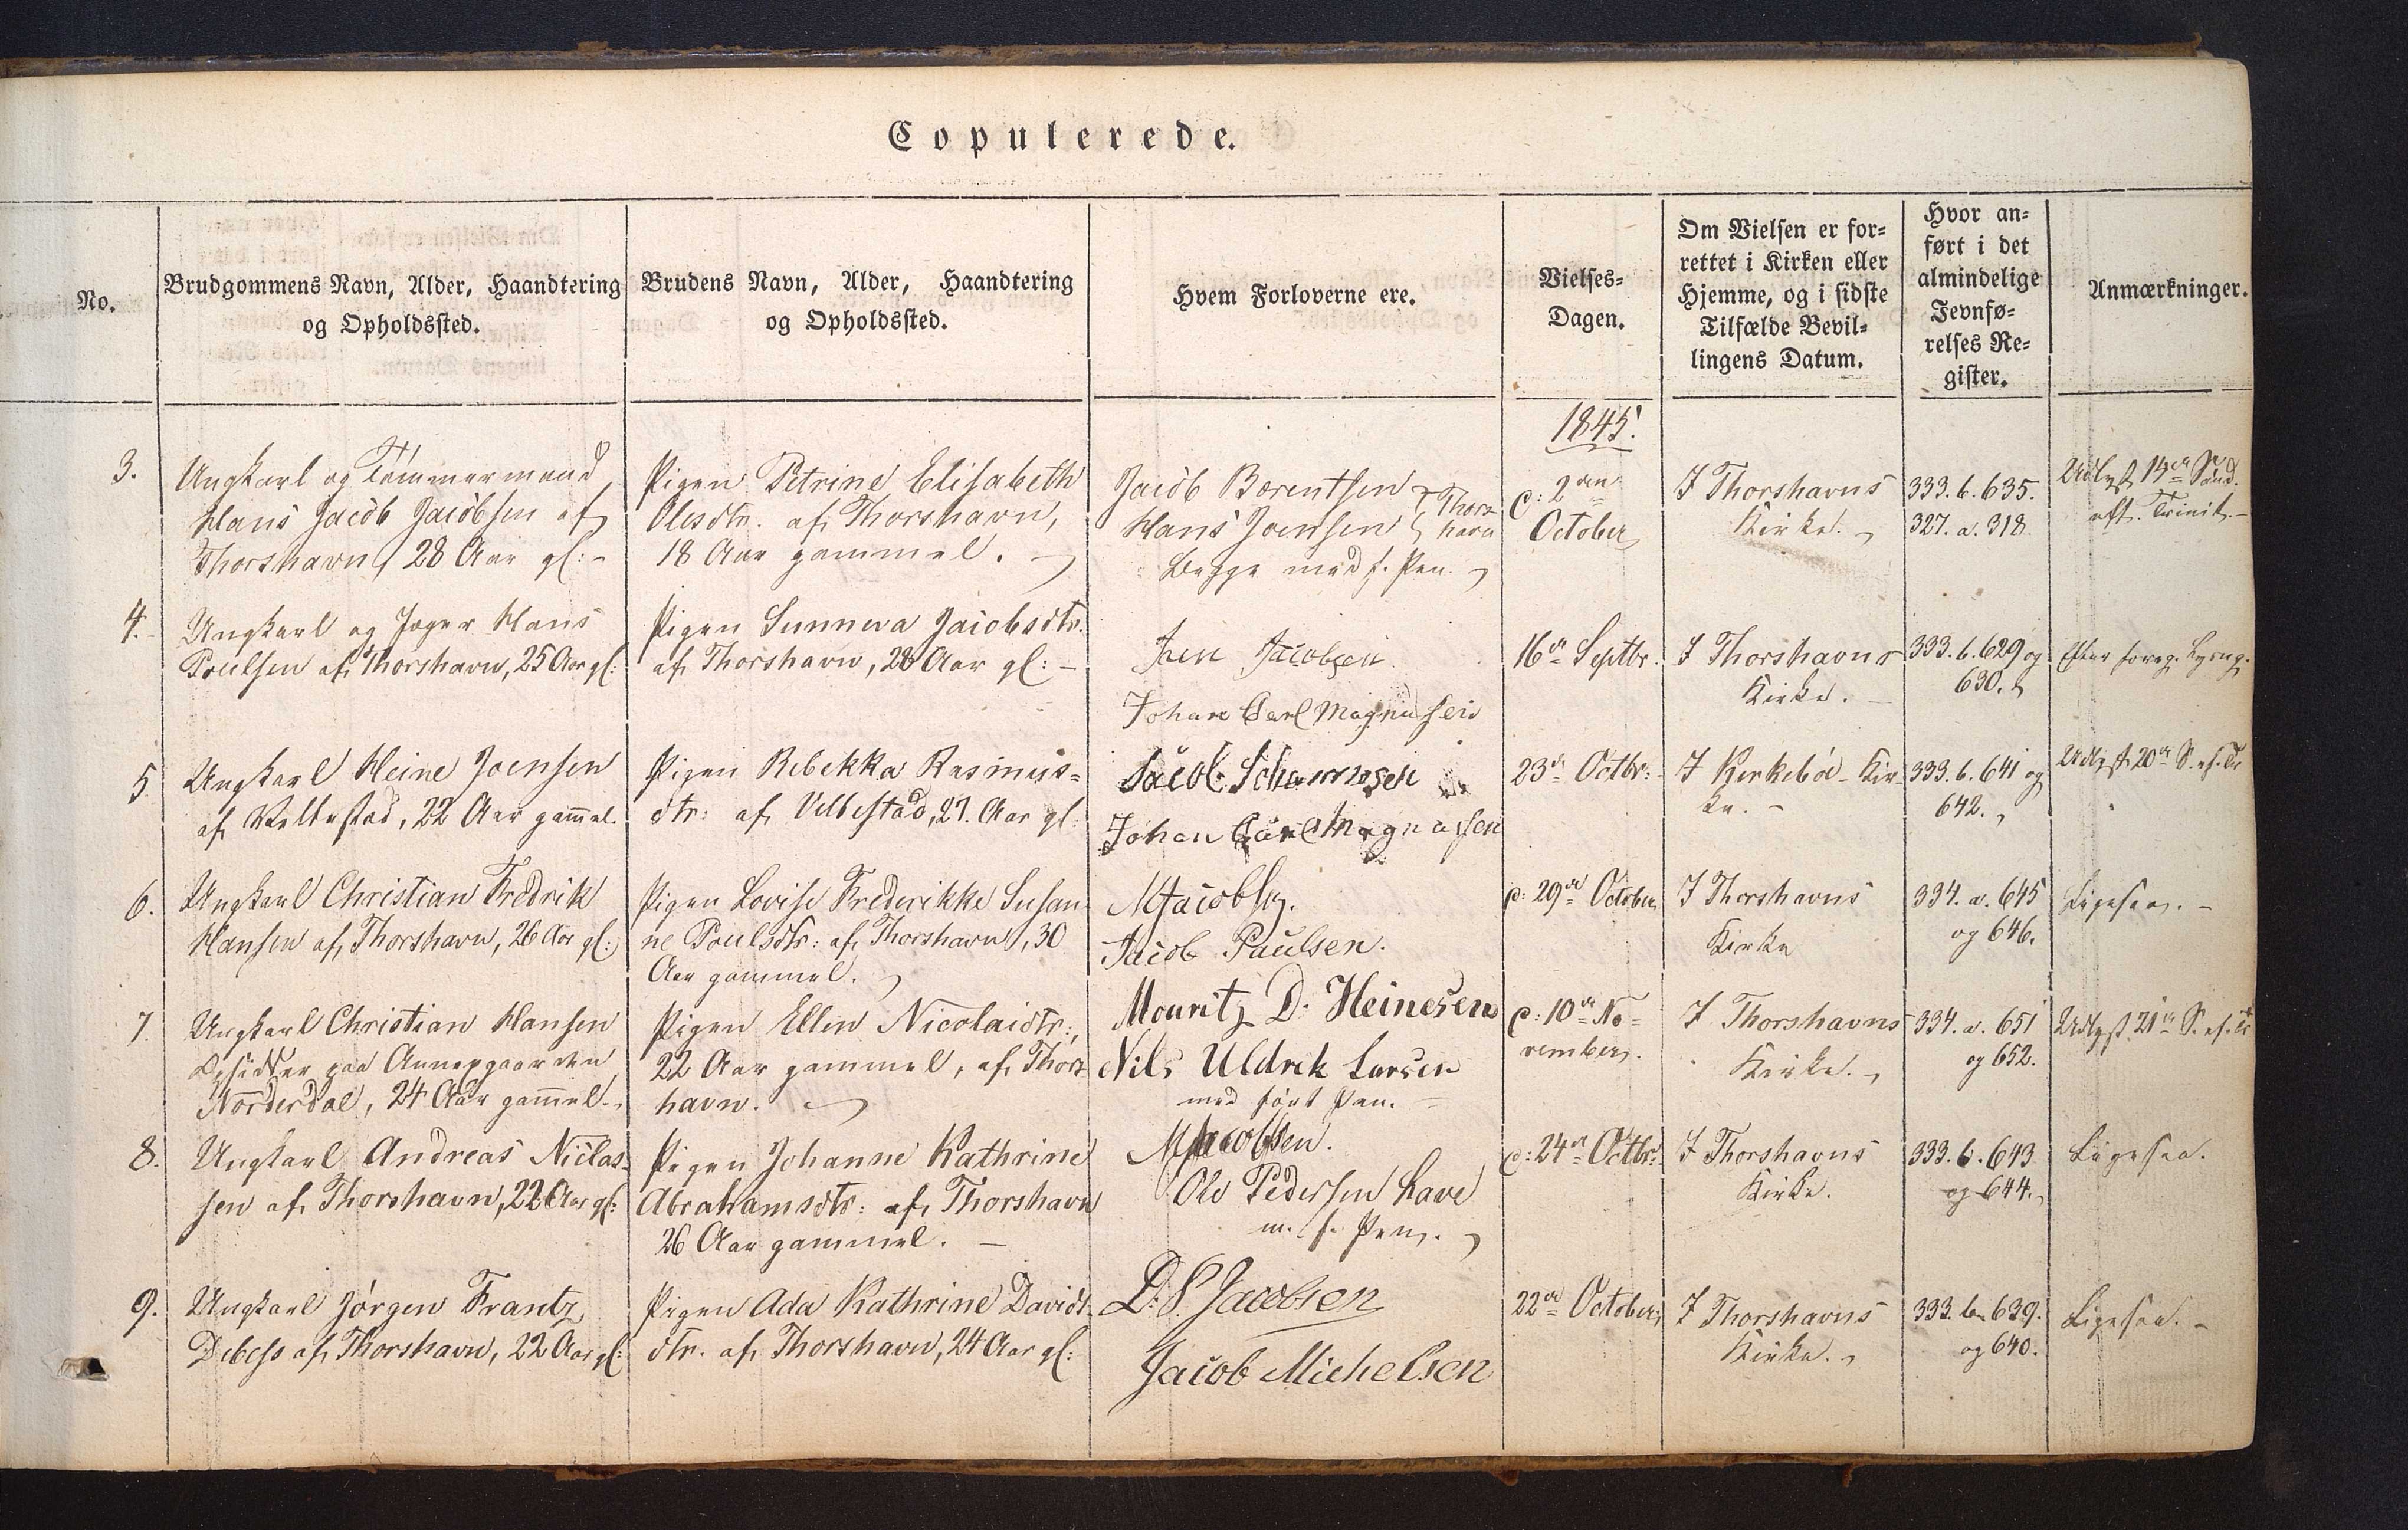 Copulerede.
No.
Brudgommens Navn, Alder, Haandtering
og Opholdssted.
Brudens Navn, Alder, Haandtering
og Opholdssted.
Hvem Forloverne ere.
Vielses-
Dagen.
Om Vielsen er for-
rettet i Kirken eller
Hjemme, og i sidste
Tilfælde Bevil-
lingens Datum.
Hvor an-
ført i det
almindelige
Jevnfø-
relses Re-
gister.
Anmærkninger.
1845.
3.
Ungkarl og Tømmermand
Hans Jacob Jacobsen af
Thorshavn, 28 Aar gl:
Pigen Petrine Elisabeth
Olesdtr. af Thorshavn,
18 Aar gammel.
Jacob Berentsen
Hans Joensen
Thors-
havn
Begge med f. Pen.
d: 2den
October
I Thorshavns
Kirke.
333. b. 635.
327. a. 318
Udlyst 14de Sønd.
eft. Trinit.
4.
Ungkarl og Jæger Hans
Poulsen af Thorshavn, 25 Aar gl:
Pigen Sunneva Jacobsdtr.
af Thorshavn, 28 Aar gl:
Joen Jacobsen
Johan Carl Magnussen
16de Septbr.
I Thorshavns
Kirke.
333. b. 629 og
630.
Efter foreg. Lysng.
5.
Ungkarl Heine Joensen
af Velbestad, 22 Aar gammel.
Pigen Rebekka Rasmus-
dtr: af Velbestad, 21. Aar gl.
Jacob Johannesen
Johan Carl Magnussen
23de Octbr:
I Kirkebøe Kir-
ke.
333. b. 641 og
642.
Udlyst 20de S. ef. Tr
6.
Ungkarl Christian Fredrik
Hansen af Thorshavn, 26 Aar gl:
Pigen Lovise Frederikke Susan-
ne Poulsdtr: af Thorshavn, 30
Aar gammel.
MJacobsen.
Jacob Paulsen.
d: 29de October
I Thorshavns
Kirke
334. a. 645
og 646.
Ligesaa.
7.
Ungkarl Christian Hansen
Opsidder paa Annexgaarden
Norderdal, 24 Aar gammel.
Pigen Ellen Nicolaidtr:,
22 Aar gammel, af Thors-
havn.
Mouritz D. Heinesen
Nils Uldrek Larsen
med ført Pen.
d: 10de No-
vember.
I Thorshavns
Kirke.
334. a. 651
og 652.
Udlyst 21de S. ef. Tr
8.
Ungkarl Andreas Niclas-
sen af Thorshavn, 22 Aar gl:
Pigen Johanne Kathrine
Abrahamsdtr: af Thorshavn
26 Aar gammel.
MJacobsen.
Ole Pedersen
m. f. Pen.
d: 24de Octbr:
I Thorshavns
Kirke.
333. b. 643
og 644.
Ligesaa.
9.
Ungkarl Jørgen Frantz
Debess af Thorshavn, 22 Aar gl:
Pigen Ada Kathrine Davids-
dtr. af Thorshavn, 24 Aar gl:
D. S. Jacobsen
Jacob Michelsen
22de October
I Thorshavns
Kirke.
333. b. 639.
og 640.
Ligesaa.